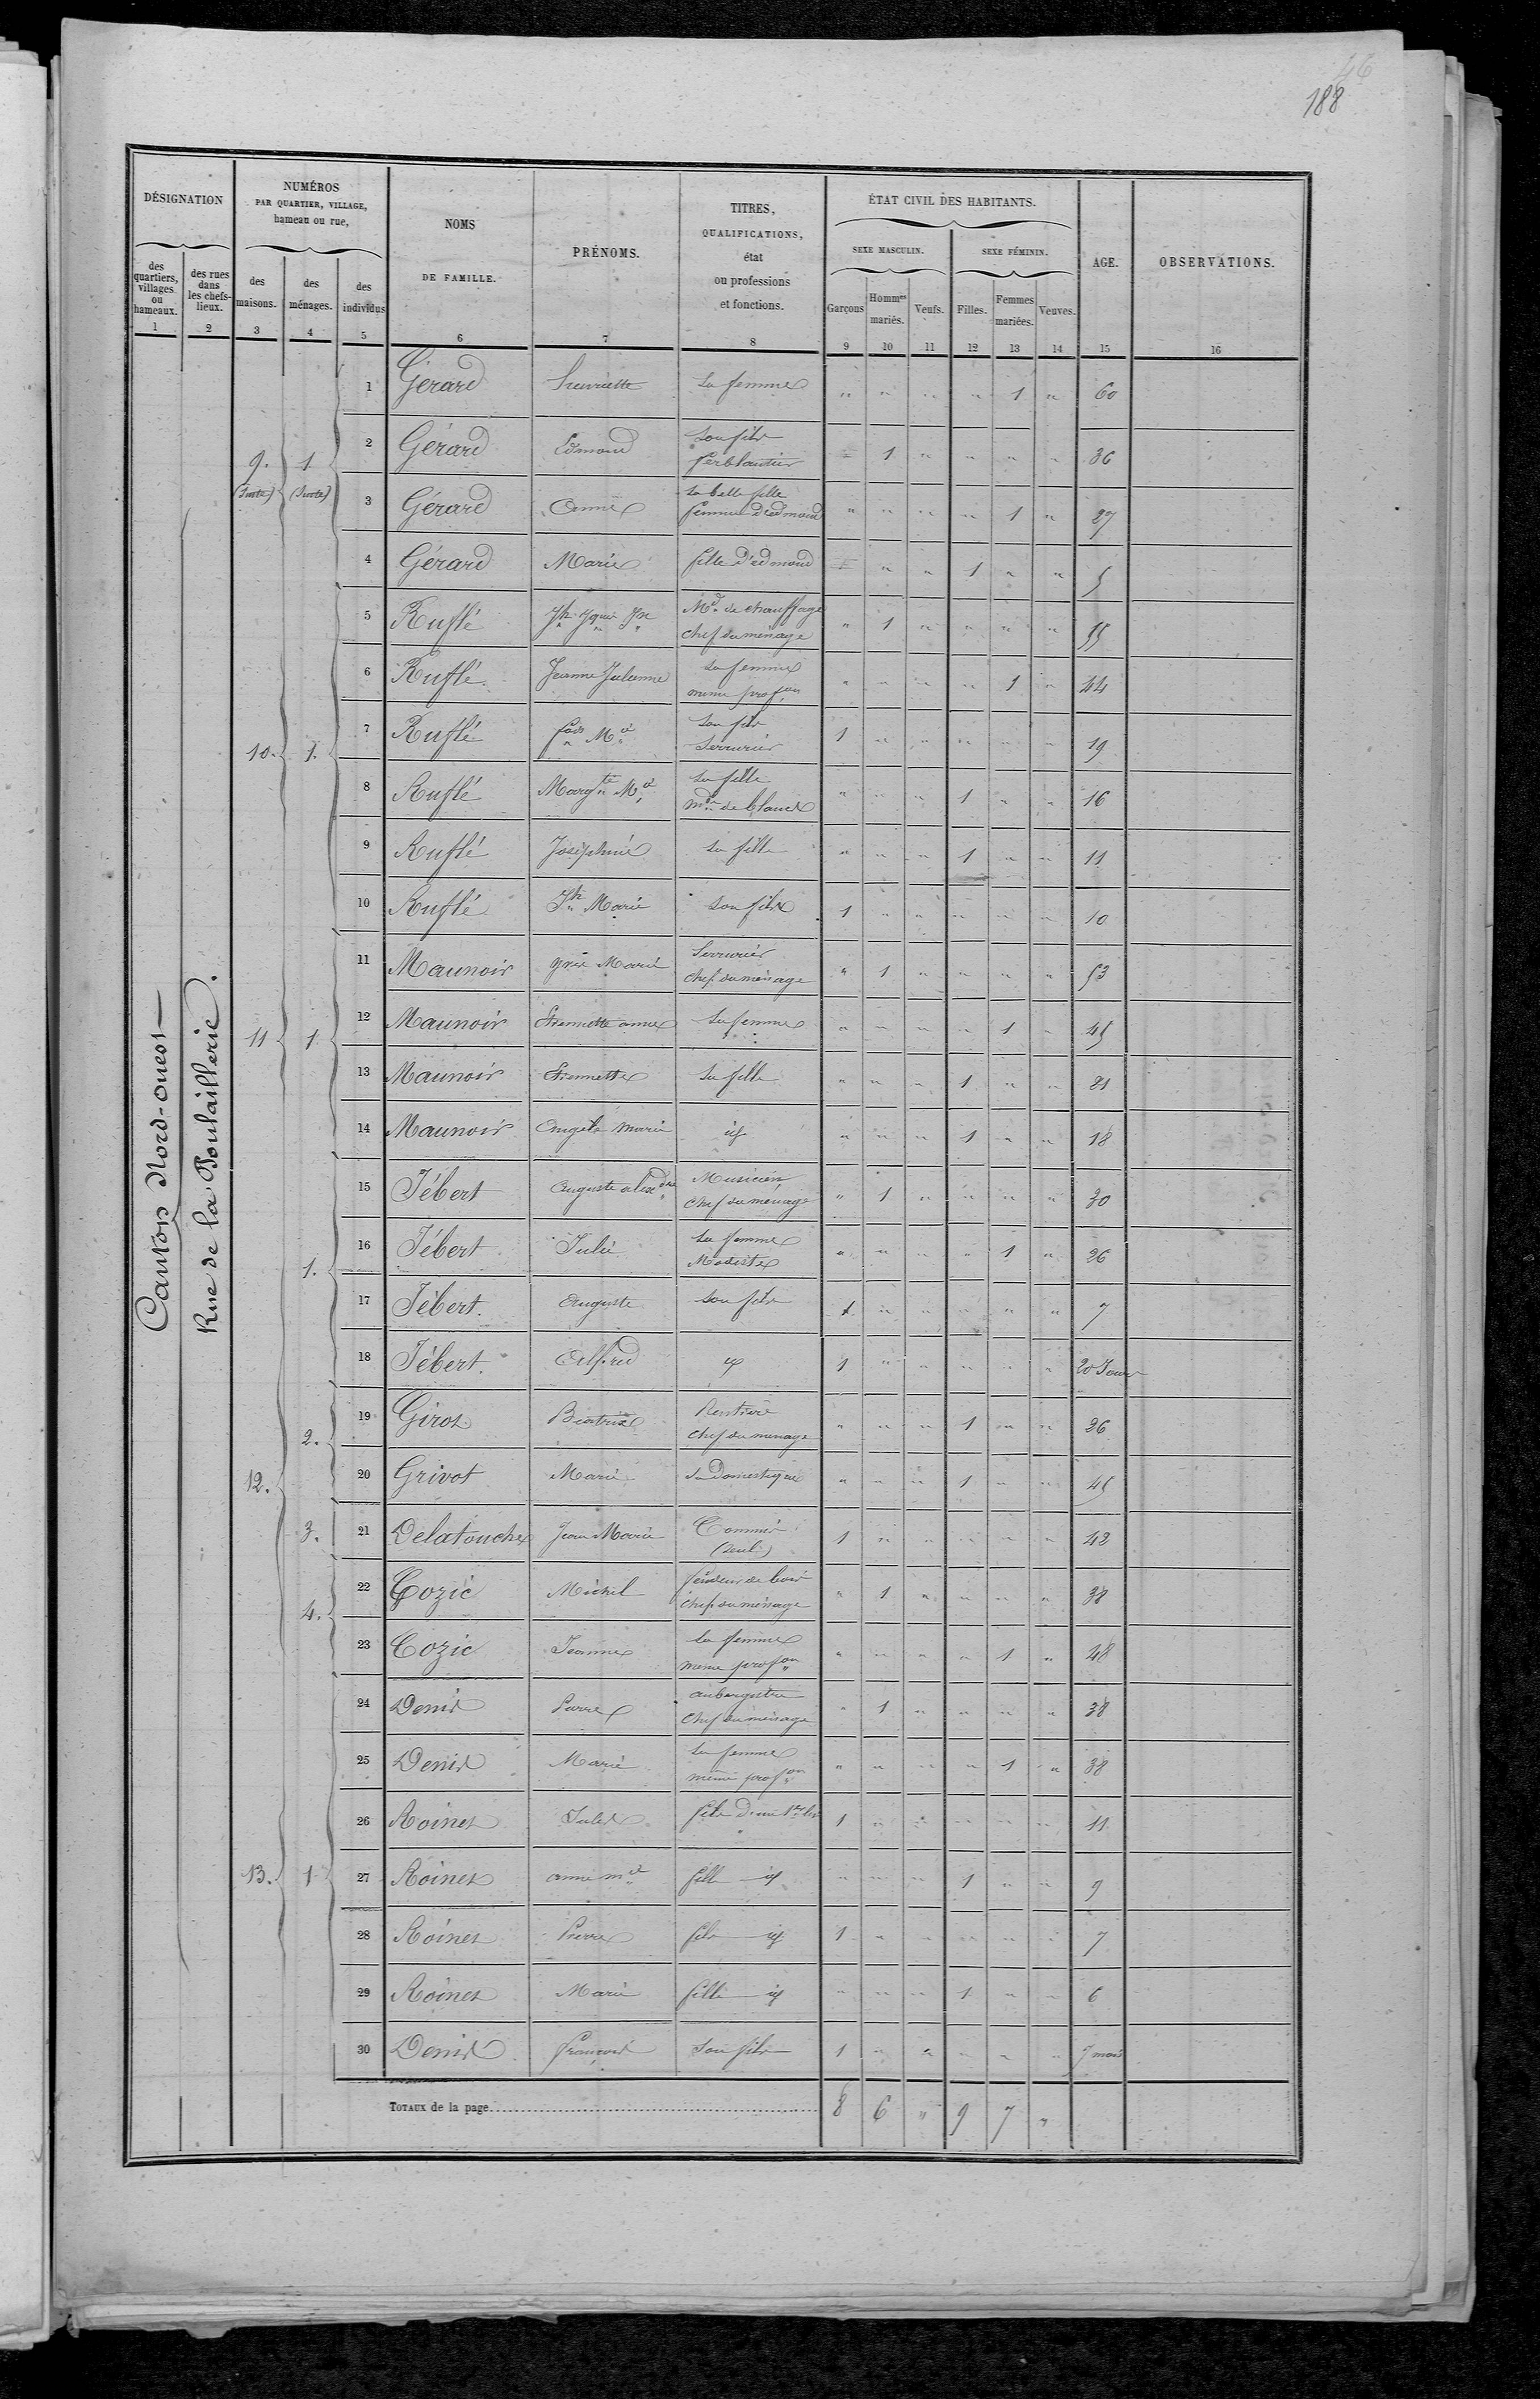 46
188
DÉSIGNATION
NUMÉROS
PAR QUARTIER, VILLAGE,
hameau ou rue,
NOMS
DE FAMILLE.
PRÉNOMS.
TITRES,
QUALIFICATIONS,
état
ou professions
et fonctions.
ÉTAT CIVIL DES HABITANTS.
SEXE MASCULIN.
SEXE FÉMININ.
AGE.
OBSERVATIONS.
des
quartiers,
villages
ou
hameaux.
des rues
dans
les chefs-
lieux.
des
maisons.
des
ménages.
des
individus
Garçons
Hommes
mariés.
Veufs.
Filles.
Femmes
mariées.
Veuves.
1 2 3 4 5 6 7 8 9 10 11 12 13 14 15 16
Canton Nord-Ouest
Rue de la Poulaillerie.
1 Gérard Henriette Sa femme " " " " 1 " 60
9. (Suite) 1 (Suite)
2 Gérard Edmond Son fils ferblantier " 1 " " " " 36
3 Gérard Anne Sa belle fille femme d'edmond " " " " 1 " 27
4 Gérard Marie fille d'edmond " " " 1 " " 5
5 Ruflé Md. de chauffage chef du ménage " 1 " " " " 55
6 Ruflé Jeanne Julienne Sa femme meme profon " " " " 1 " 44
10. 1.
7 Ruflé fois Mie Son fils Serrurier 1 " " " " " 19
8 Ruflé Margte Mie Sa fille mde de blanc " " " 1 " " 16
9 Ruflé Joséphine Sa fille " " " 1 " " 11
10 Ruflé Jh Marie Son fils 1 " " " " " 10
11 Maunoir Marie Serrurier chef du ménage " 1 " " " " 53
11 1
12 Maunoir Etiennette anne Sa femme " " " " 1 " 45
13 Maunoir Etiennette Sa fille " " " 1 " " 21
14 Maunoir Angèle Marie id " " " 1 " " 18
15 Jébert Auguste alexdre Musicien chef du ménage " 1 " " " " 30
1.
16 Jébert Julie Sa femme Modiste " " " " 1 " 26
17 Jébert. Auguste Son fils 1 " " " " " 7
18 Jébert. Alfred id 1 " " " " " 20 Jours
2.
19 Girot Béatrix Rentière chef du menage " " " 1 " " 36
12.
20 Grivot Marie Sa Domestique " " " 1 " " 45
3.
21 Delatouche Jean Marie Commis (seul) 1 " " " " " 42
4.
22 Cozic Michel fendeur de bois chef du ménage " 1 " " " " 38
23 Cozic Jeanne Sa femme meme profon " " " " 1 " 48
24 Denis Pierre aubergiste chef du ménage " 1 " " " " 38
25 Denis Marie Sa femme même profon " " " " 1 " 38
26 Roinet Jules fils d'un 1er lit 1 " " " " " 11
13. 1
27 Roinet anne mie fille id " " " 1 " " 9
28 Roinet Pierre fils id 1 " " " " " 7
29 Roinet Marie fille id " " " 1 " " 6
30 Denis François Son fils 1 " " " " " 7 mois
TOTAUX de la page 8 6 " 9 7 "